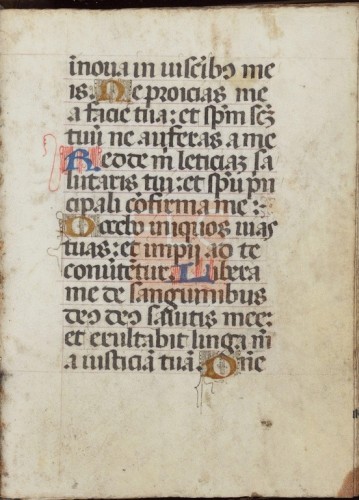 inoua in uiscib9 me
is. Ne proicias me
a facie tua: et spm̃ scz̃
tuu ne auferas a me
Redde m̃ leticiaz sa
lutaris tui: et spũ pn̄
cipali cõfirma me:
Docebo iniquos uias
tuas: et impij ad te
conũtetur. Libera
me de sanguinibus
deus deus salutis mee:
et exultabit linga m̃
a iusticia tuã. One